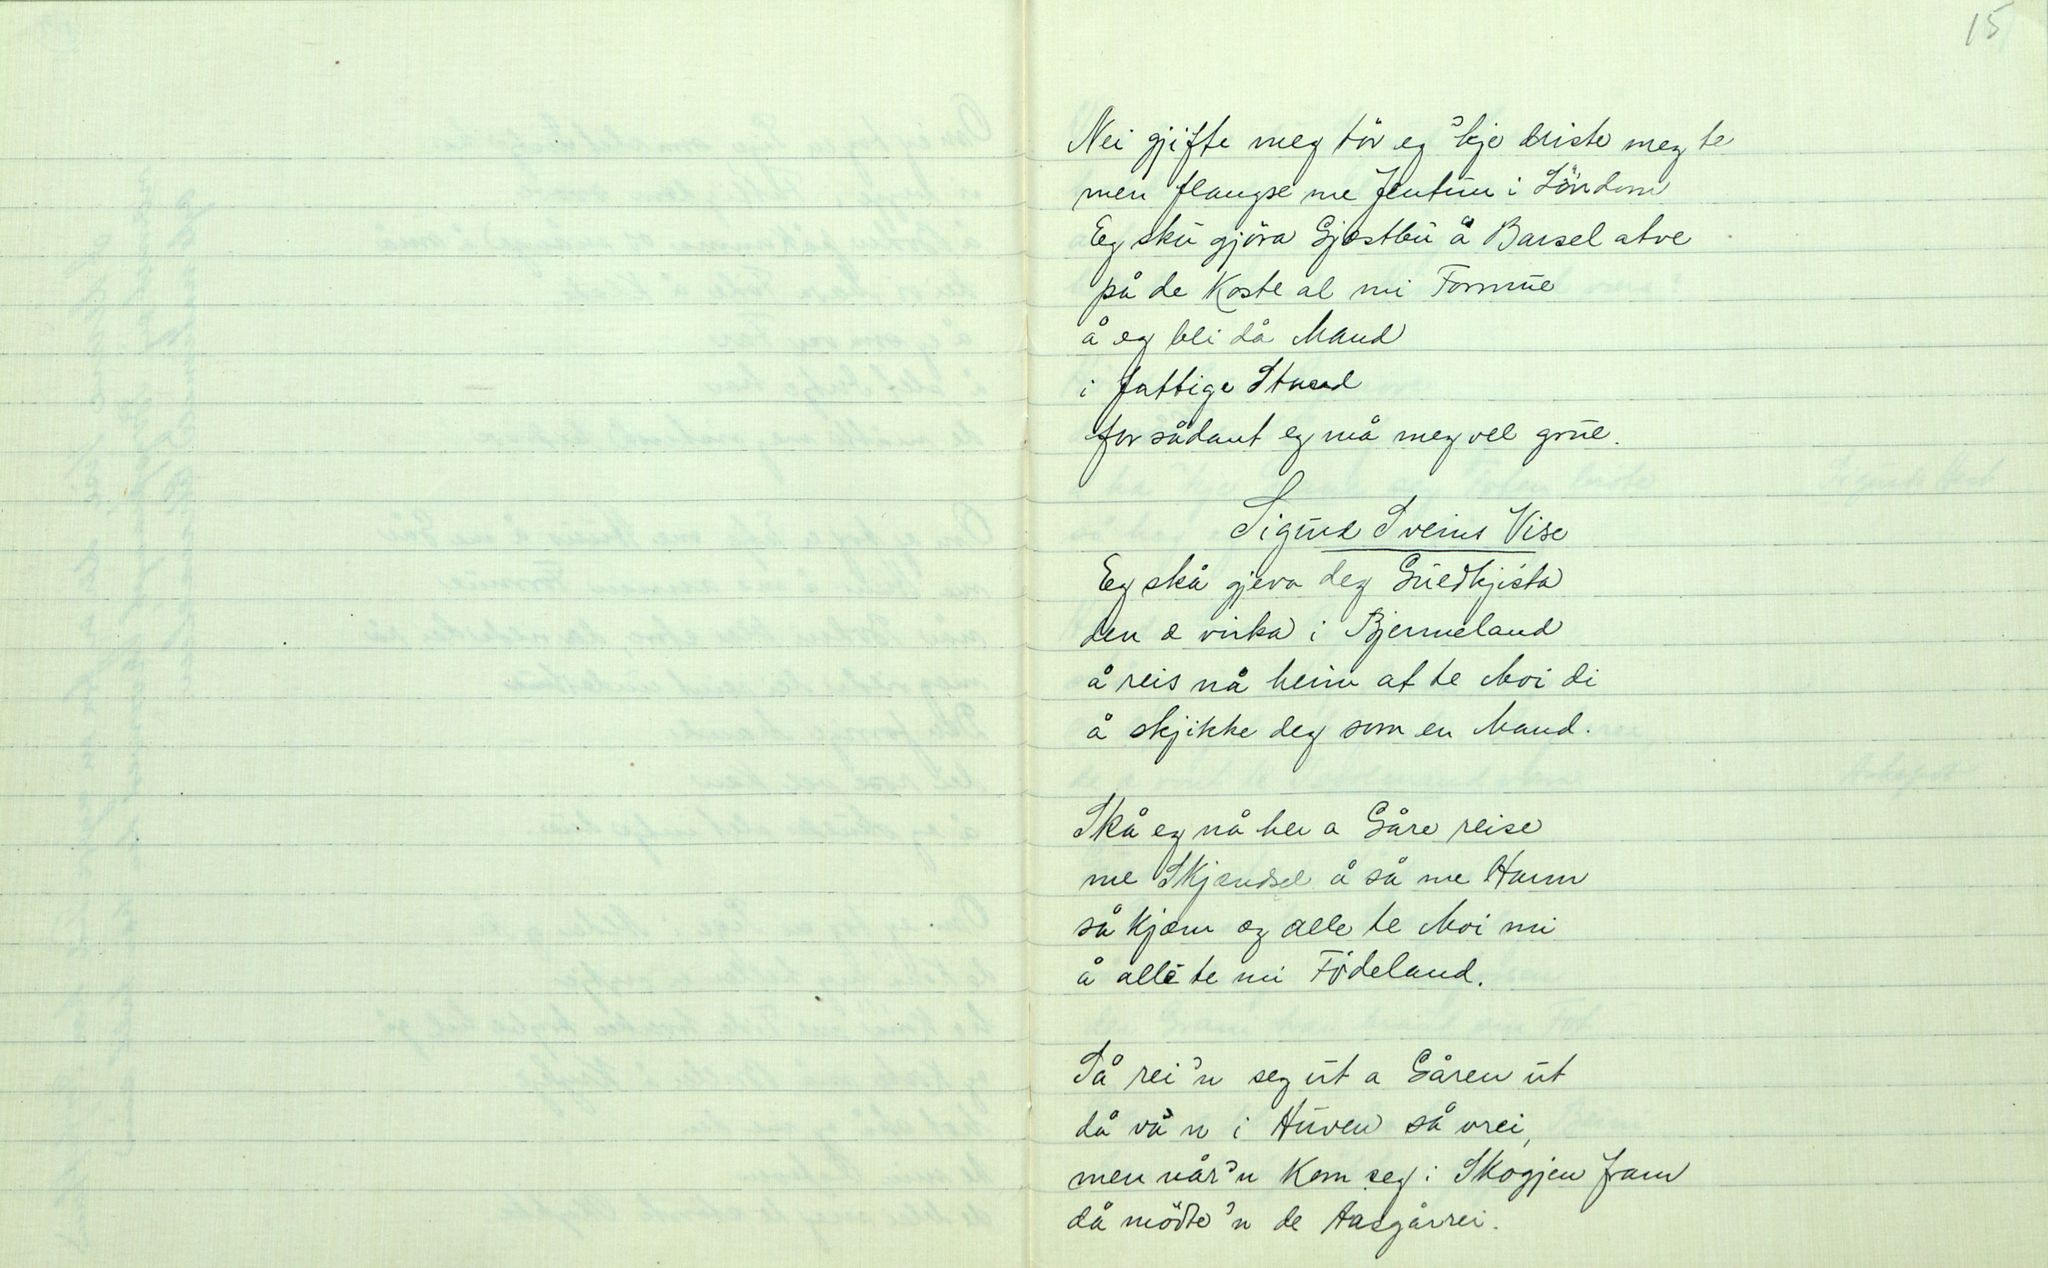 15
Nei gjifte meg tör eg 'kje driste meg te
men flangse me Jentun i Löndom
Eg sku gjöra Gjæstbu å Barsel atve
på de Koste al mi Formue
å eg bli då Mand
i fattige Stand
for sådant eg må meg vel grue.
Sigurd Sveins Vise
Eg skå gjeva deg Guldkjista
den æ virka i Bjermeland
å reis nå heim at te Moi di
å skjikke deg som en Mand.
Skå eg nå her a Gåre reise
me Skjændsel å så me Harm
så kjæm eg alle te Moi mi
å alle te mi Födeland.
Så rei 'n seg ut a Gåren ut
då va 'n i Huven så vrei,
men når 'n kom seg i Skogjen fram
då mödte 'n de Aasgårrei.